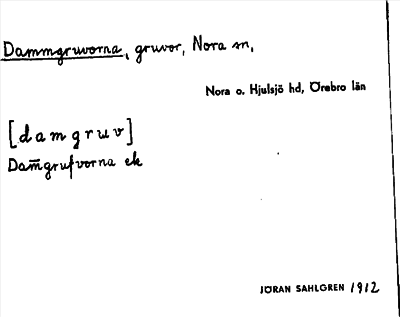 Dammgruvorna, gruvor, Nora sn,
Nora o. Hjulsjö hd, Örebro län
[damgruv]
Dam̅grufvorna ek
JÖRAN SAHLGREN 1912